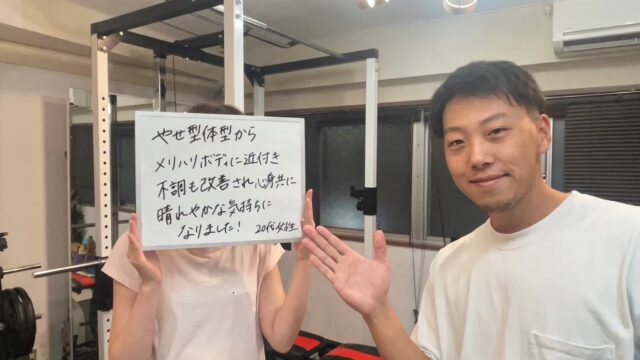 やせ型体型から
メリハリボディに近付き
不調も改善され心身共に
晴れやかな気持ちに
なりました! 20代女性